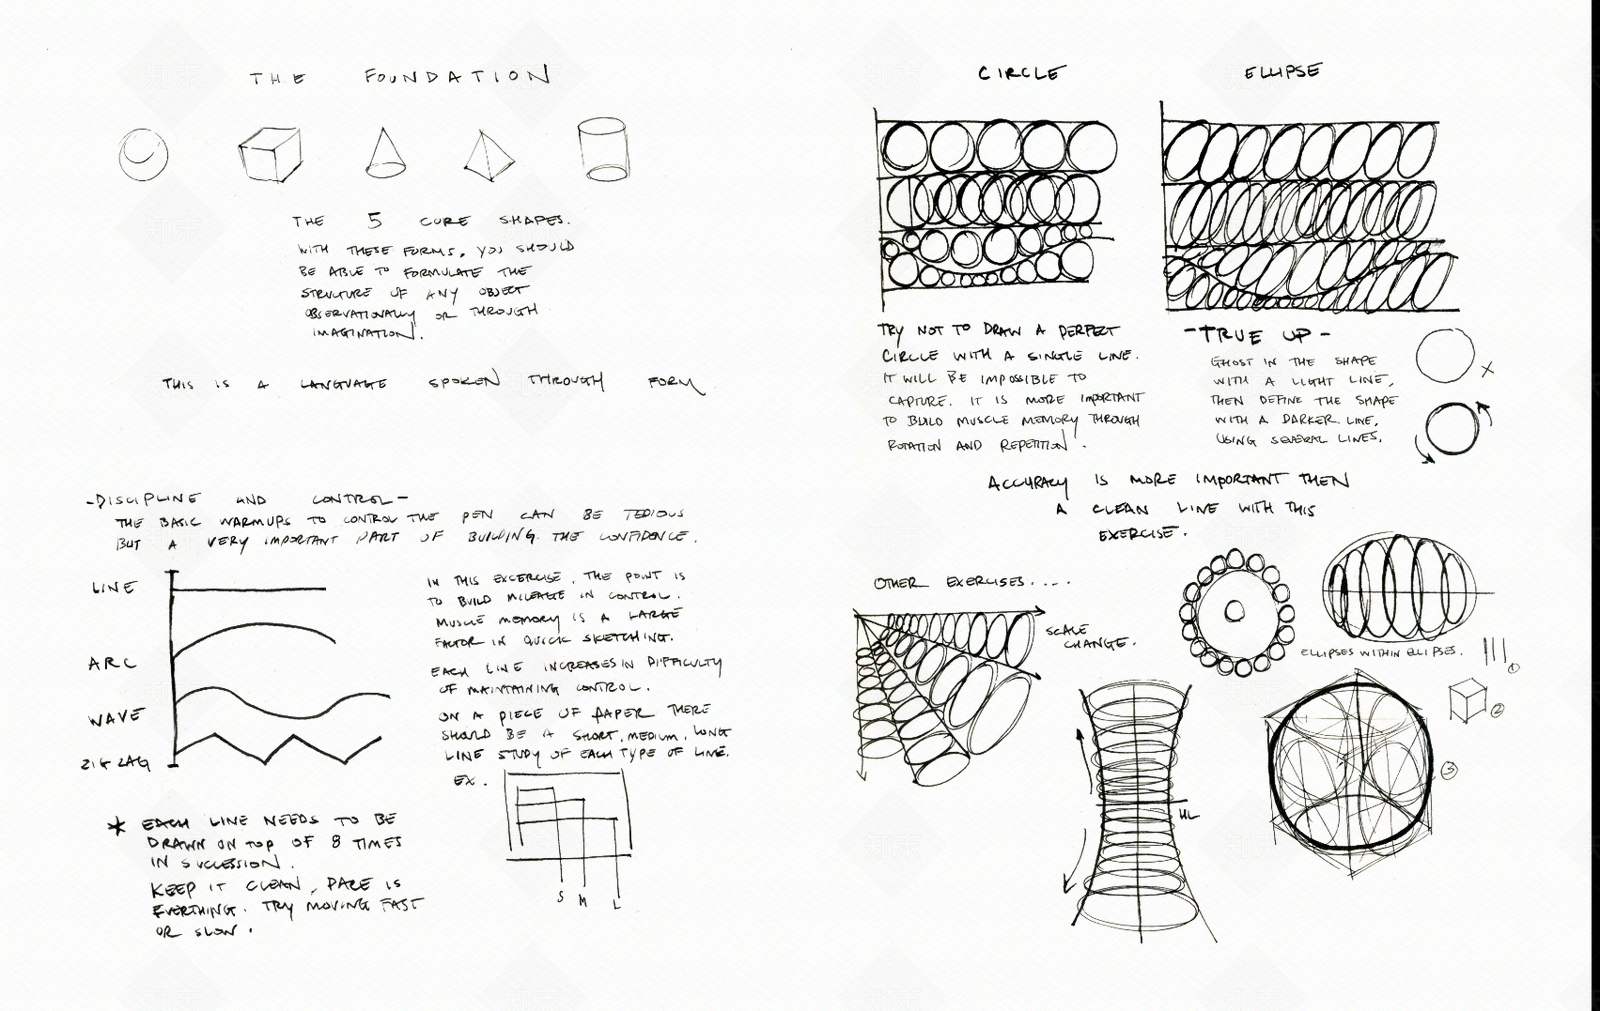 THE FOUNDATION
THE 5 CORE SHAPES.
WITH THESE FORMS, YOU SHOULD
BE ABLE TO FORMULATE THE
STRUCTURE OF ANY OBJECT
OBSERVATIONALLY OR THROUGH
IMAGINATION.
THIS IS A LANGUAGE SPOKEN THROUGH FORM
-DISCIPLINE AND CONTROL-
THE BASIC WARMUPS TO CONTROL THE PEN CAN BE TEDIOUS
BUT A VERY IMPORTANT PART OF BUILDING THE CONFIDENCE.
LINE
ARC
WAVE
ZIGZAG
IN THIS EXCERCISE, THE POINT IS
TO BUILD MILEAGE IN CONTROL.
MUSCLE MEMORY IS A LARGE
FACTOR IN QUICK SKETCHING.
EACH LINE INCREASES IN DIFFICULTY
OF MAINTAINING CONTROL.
ON A PIECE OF PAPER THERE
SHOULD BE A SHORT, MEDIUM, LONG
LINE STUDY OF EACH TYPE OF LINE.
EX.
S M L
* EACH LINE NEEDS TO BE
DRAWN ON TOP OF 8 TIMES
IN SUCCESSION.
KEEP IT CLEAN, PACE IS
EVERTHING. TRY MOVING FAST
OR SLOW.
CIRCLE
TRY NOT TO DRAW A PERFECT
CIRCLE WITH A SINGLE LINE.
IT WILL BE IMPOSSIBLE TO
CAPTURE. IT IS MORE IMPORTANT
TO BUILD MUSCLE MEMORY THROUGH
ROTATION AND REPETITION.
ELLIPSE
-TRUE UP-
GHOST IN THE SHAPE
WITH A LIGHT LINE,
THEN DEFINE THE SHAPE
WITH A DARKER LINE,
USING SEVERAL LINES.
X
ACCURACY IS MORE IMPORTANT THEN
A CLEAN LINE WITH THIS
EXERCISE.
OTHER EXERCISES....
SCALE
CHANGE.
ELLIPSES WITHIN ELLIPSES.
①
②
③
HL